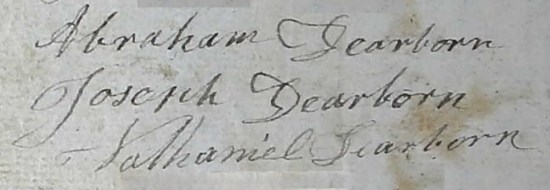 Abraham Dearborn
Joseph Dearborn
Nathaniel Dearborn